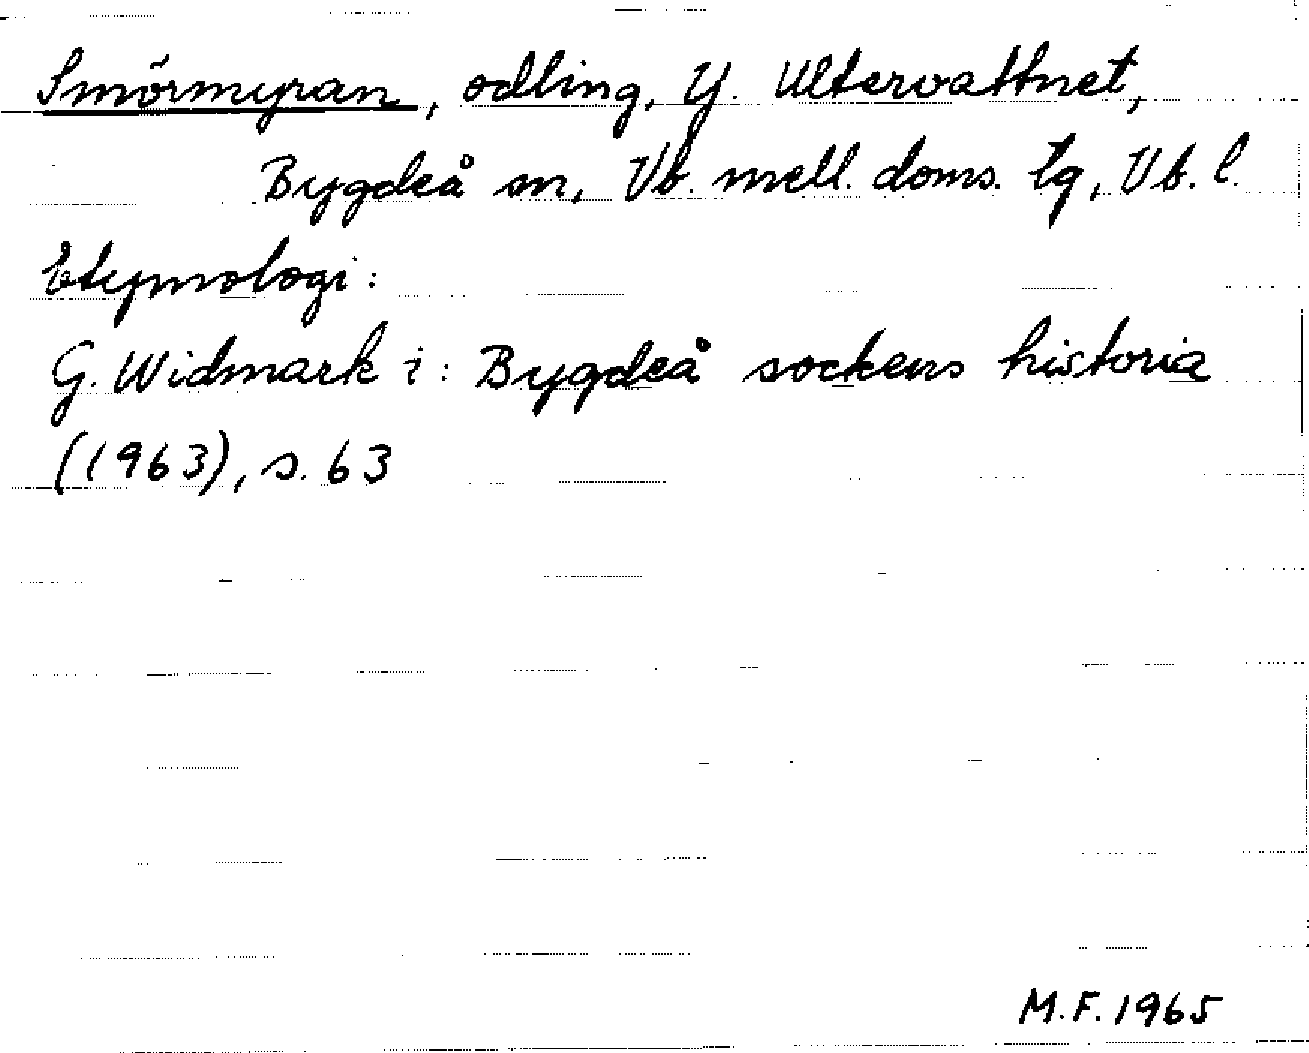 Smörmyran, odling, Y. Ultervattnet,
Bygdeå sn, Vb. mell. doms. tg, Vb. l.
Etymologi:
G. Widmark i: Bygdeå sockens historia
(1963), s. 63
M.F. 1965